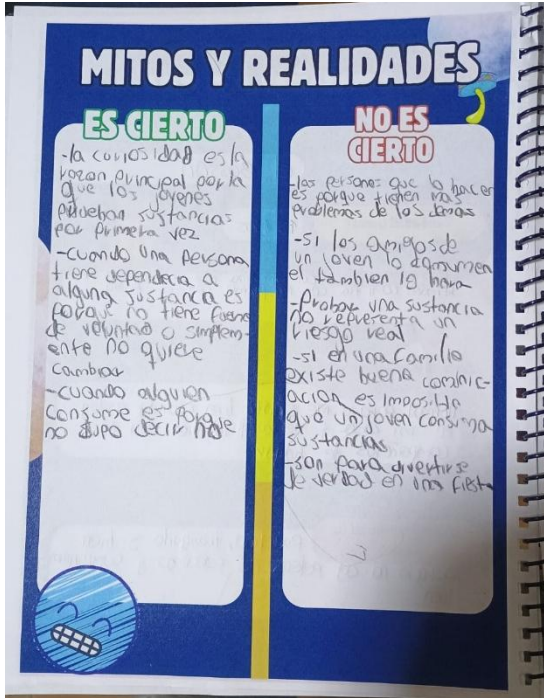 MITOS Y REALIDADES
ES CIERTO
-la curiosidad es la
razon principal por la
que los jovenes
prueban sustancias
por primera vez
-cuando una persona
tiene dependecia a
alguna sustancia es
porque no tiene fuerza
de voluntad o simplem-
ente no quiere
cambiar
-cuando alguien
consume es porque
no supo decir
NO ES
CIERTO
-las personas que lo hacen
es porque tienen mas
problemas de los demas
-si los amigos de
un joven lo consumen
el tambien lo hara
-Probar una sustancia
no representa un
riesgo real
-si en una familia
existe buena comunic-
acion es imposible
que un joven consuma
sustancias
-son para divertirse
de verdad en una fiesta